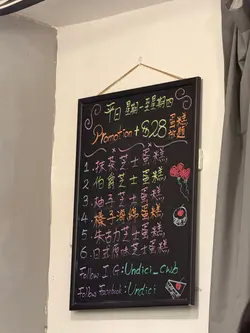 平日 星期一至星期四
Promotion + $28 蛋糕
1. 抹茶芝士蛋糕
2. 伯爵芝士蛋糕
3. 柚子芝士蛋糕
4. 榛子海綿蛋糕
5. 朱古力芝士蛋糕
6. 日式原味芝士蛋糕
Follow I G : Undici_cwb
Follow Facebook : Undici